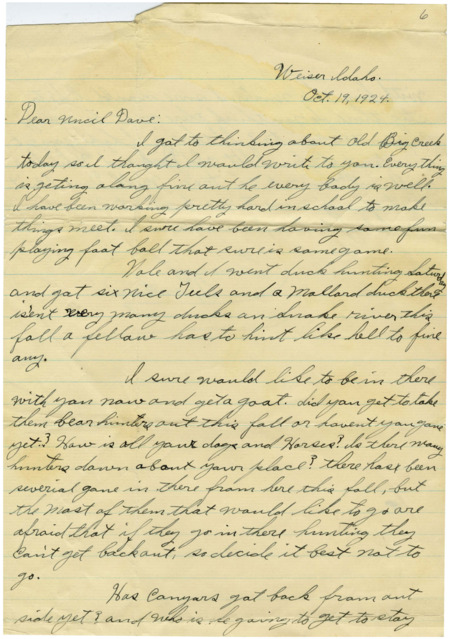 6
Weiser Idaho.
Oct. 19, 1924.
Dear Uncil Dave:
I got to thinking about old Big Creek
today so I thought I would write to you. Every thing
is geting along fine out he every body is well.
I have been working pretty hard in school to make
things meet. I sure have been having some fun
playing foot ball that sure is some game.
and I went duck hunting Saturday
and got six nice Teels and a Mallard duck there
isent very many ducks on snake river this
fall a fellow has to hint like hell to fine
any.
I sure would like to be in there
with you now and get a goat. did you get to take
them bear hunters out this fall or havent you gone
yet? How is all your dogs and Horses? Is there many
hunters down about your place? there hase been
severial gone in there from here this fall, but
the most of them that would like to go are
afraid that if they go in there hunting they
can't get back out, so decide it best not to
go.
Has Conyars got back from out
side yet? and who is he going to get to stay